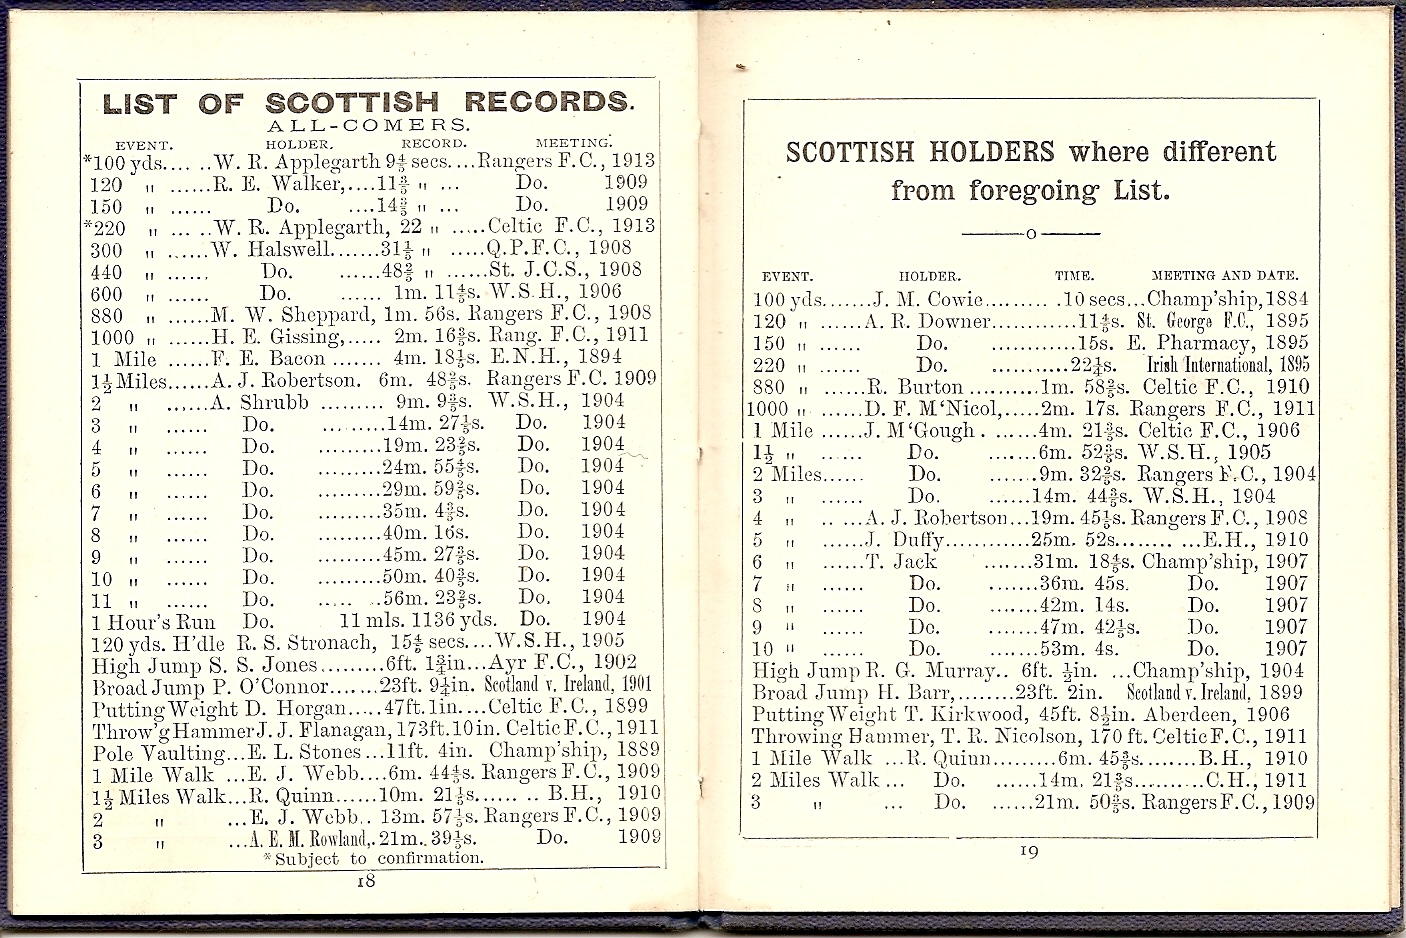 LIST OF SCOTTISH RECORDS.
ALL-COMERS.
EVENT. HOLDER. RECORD. MEETING.
*100 yds.... ..W. R. Applegarth 9⅘ secs....Rangers F.C., 1913
120 " ......R. E. Walker,....11⅗ " ... Do. 1909
150 " ...... Do. ....14⅗ " ... Do. 1909
*220 " ... ..W. R. Applegarth, 22 " .....Celtic F.C., 1913
300 " ......W. Halswell.......31⅕ " .....Q.P.F.C., 1908
440 " ...... Do. ......48⅖ " ......St. J.C.S., 1908
600 " ...... Do. ...... 1m. 11⅘s. W.S.H., 1906
880 " ......M. W. Sheppard, 1m. 56s. Rangers F.C., 1908
1000 " ......H. E. Gissing,..... 2m. 16⅗s. Rang. F.C., 1911
1 Mile ......F. E. Bacon ....... 4m. 18⅕s. E.N.H., 1894
1½ Miles......A. J. Robertson. 6m. 48⅖s. Rangers F.C. 1909
2 " ......A. Shrubb ......... 9m. 9⅗s. W.S.H., 1904
3 " ...... Do. .........14m. 27⅕s. Do. 1904
4 " ...... Do. .........19m. 23⅖s. Do. 1904
5 " ...... Do. .........24m. 55⅘s. Do. 1904
6 " ...... Do. .........29m. 59⅖s. Do. 1904
7 " ...... Do. .........35m. 4⅗s. Do. 1904
8 " ...... Do. .........40m. 16s. Do. 1904
9 " ...... Do. .........45m. 27⅗s. Do. 1904
10 " ...... Do. .........50m. 40⅗s. Do. 1904
11 " ...... Do. ..... ..56m. 23⅖s. Do. 1904
1 Hour's Run Do. 11 mls. 1136 yds. Do. 1904
120 yds. H'dle R. S. Stronach, 15⅘ secs....W.S.H., 1905
High Jump S. S. Jones.........6ft. 1¾in...Ayr F.C., 1902
Broad Jump P. O'Connor.......23ft. 9¼in. Scotland v. Ireland, 1901
Putting Weight D. Horgan....47ft. 1in....Celtic F.C., 1899
Throw'g Hammer J. J. Flanagan, 173ft. 10in. Celtic F.C., 1911
Pole Vaulting...E. L. Stones...11ft. 4in. Champ'ship, 1889
1 Mile Walk ...E. J. Webb....6m. 44⅘s. Rangers F.C., 1909
1½ Miles Walk...R. Quinn......10m. 21⅕s...... .. B.H., 1910
2 " ...E. J. Webb.. 13m. 57⅕s. Rangers F.C., 1909
3 " ...A. E. M. Rowland,.21m..39⅕s. Do. 1909
*Subject to confirmation.
18
SCOTTISH HOLDERS where different
from foregoing List.
EVENT. HOLDER. TIME. MEETING AND DATE.
100 yds.......J. M. Cowie......... .10 secs...Champ'ship, 1884
120 " ......A. R. Downer............11⅘s. St. George F.C., 1895
150 " ...... Do. ............15s. E. Pharmacy, 1895
220 " ...... Do. ...........22⅕s. Irish International, 1895
880 " ......R. Burton ..........1m. 58⅗s. Celtic F.C., 1910
1000 " ......D. F. M'Nicol,.....2m. 17s. Rangers F.C., 1911
1 Mile ......J. M'Gough . ......4m. 21⅗s. Celtic F.C., 1906
1½ " ...... Do. ......6m. 52⅗s. W.S.H., 1905
2 Miles...... Do. .......9m. 32⅗s. Rangers F.C., 1904
3 " ...... Do. ......14m. 44⅗s. W.S.H., 1904
4 " .. ...A. J. Robertson...19m. 45⅕s. Rangers F.C., 1908
5 " ......J. Duffy...........25m. 52s....... ...E.H., 1910
6 " ......T. Jack .......31m. 18⅘s. Champ'ship, 1907
7 " ...... Do. .......36m. 45s. Do. 1907
8 " ...... Do. .......42m. 14s. Do. 1907
9 " ...... Do. .......47m. 42⅕s. Do. 1907
10 " ...... Do. .......53m. 4s. Do. 1907
High Jump R. G. Murray.. 6ft. ½in. ...Champ'ship, 1904
Broad Jump H. Barr,........23ft. 2in. Scotland v. Ireland, 1899
Putting Weight T. Kirkwood, 45ft. 8½in. Aberdeen, 1906
Throwing Hammer, T. R. Nicolson, 170 ft. Celtic F.C., 1911
1 Mile Walk ...R. Quinn.........6m. 45⅗s.........B.H., 1910
2 Miles Walk ... Do. .......14m. 21⅗s..........C.H., 1911
3 " ... Do. ......21m. 50⅗s. Rangers F.C., 1909
19